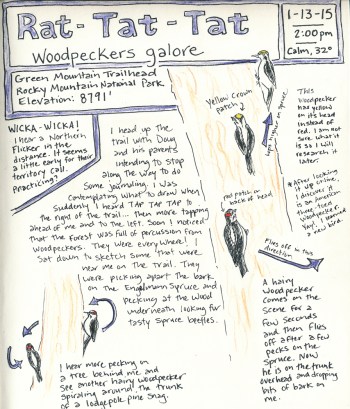 Rat-Tat-Tat
Woodpeckers galore
1-13-15
2:00pm
Calm, 32°
Green Mountain Trailhead
Rocky Mountain National Park
Elevation: 8791'
WICKA-WICKA!
I hear a Northern
Flicker in the
distance. It seems
a little early for their
territory call.
Practicing?
I head up the
trail with Doug
and his parents
intending to stop
along the way to do
some journaling. I was
contemplating what to draw when
Suddenly I heard TAP TAP TAP to
the right of the trail... then more tapping
ahead of me and to the left. Soon I noticed
that the forest was full of percussion from
woodpeckers. They were everywhere! I
sat down to sketch some that were
near me on the trail. They
were picking apart the bark
on the Engelmann Spruce and
pecking at the wood
underneath looking for
tasty Spruce Beetles.
Yellow Crown
patch
hops higher on spruce
This
Woodpecker
has yellow
on its head
instead of
red. I am not
sure what it
is so I will
research it
later.
*After looking
it up online,
I discover it
is an American
three toed
Woodpecker.
Yay! I learned
a new bird.
red patch on
back of head
Flies off in this
direction
A hairy
woodpecker
comes on the
scene for a
few seconds
and then flies
off after a few
pecks on the
Spruce. Now
he is on the trunk
overhead and dropping
bits of bark on
me.
I hear more pecking on
a tree behind me and
see another hairy woodpecker
spiraling around the trunk
of a lodgepole pine snag.